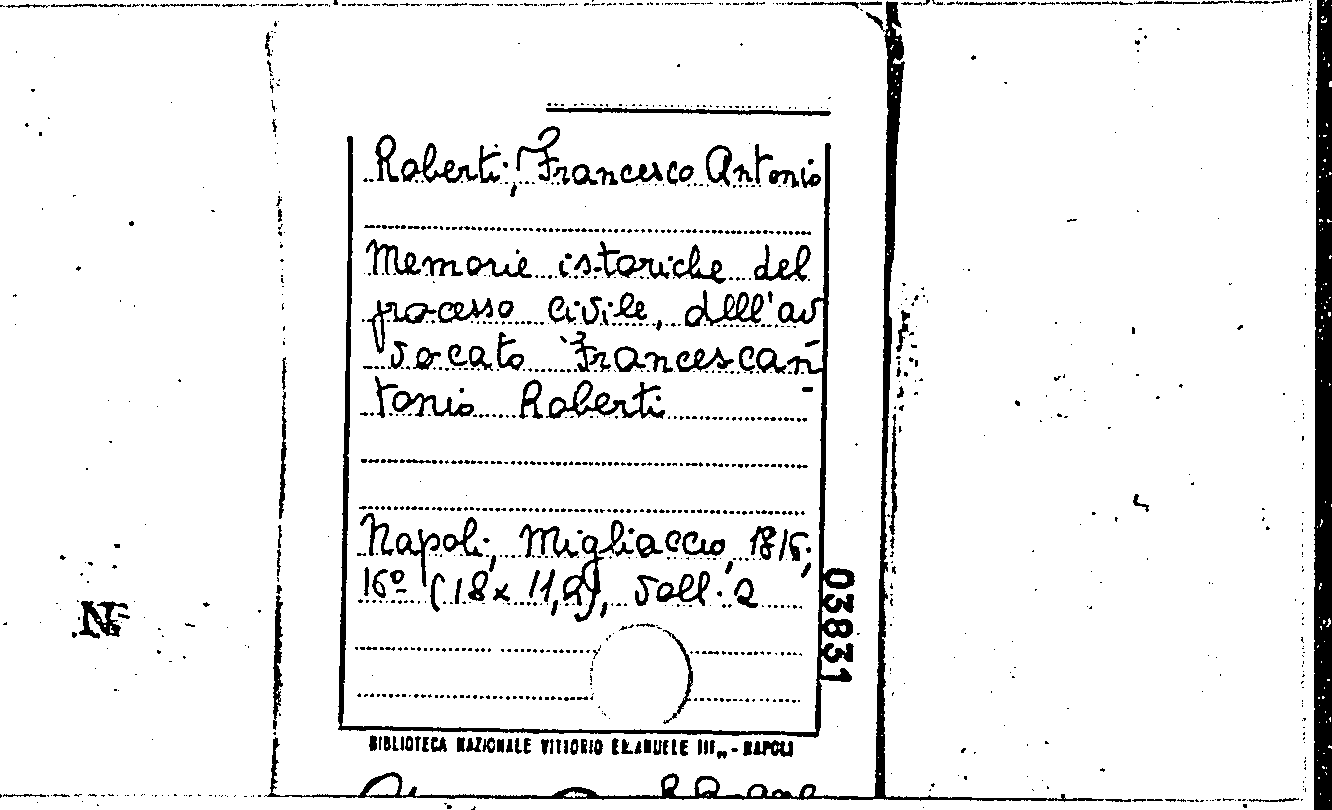 Roberti, Francesco Antonio
Memorie istoriche del
processo civile, dell'av
vocato Francescan
tonio Roberti
Napoli, Migliaccio, 1815;
16º (18x11,2), voll. 2
03831
BIBLIOTECA NAZIONALE VITTORIO EMANUELE III„ - NAPOLI